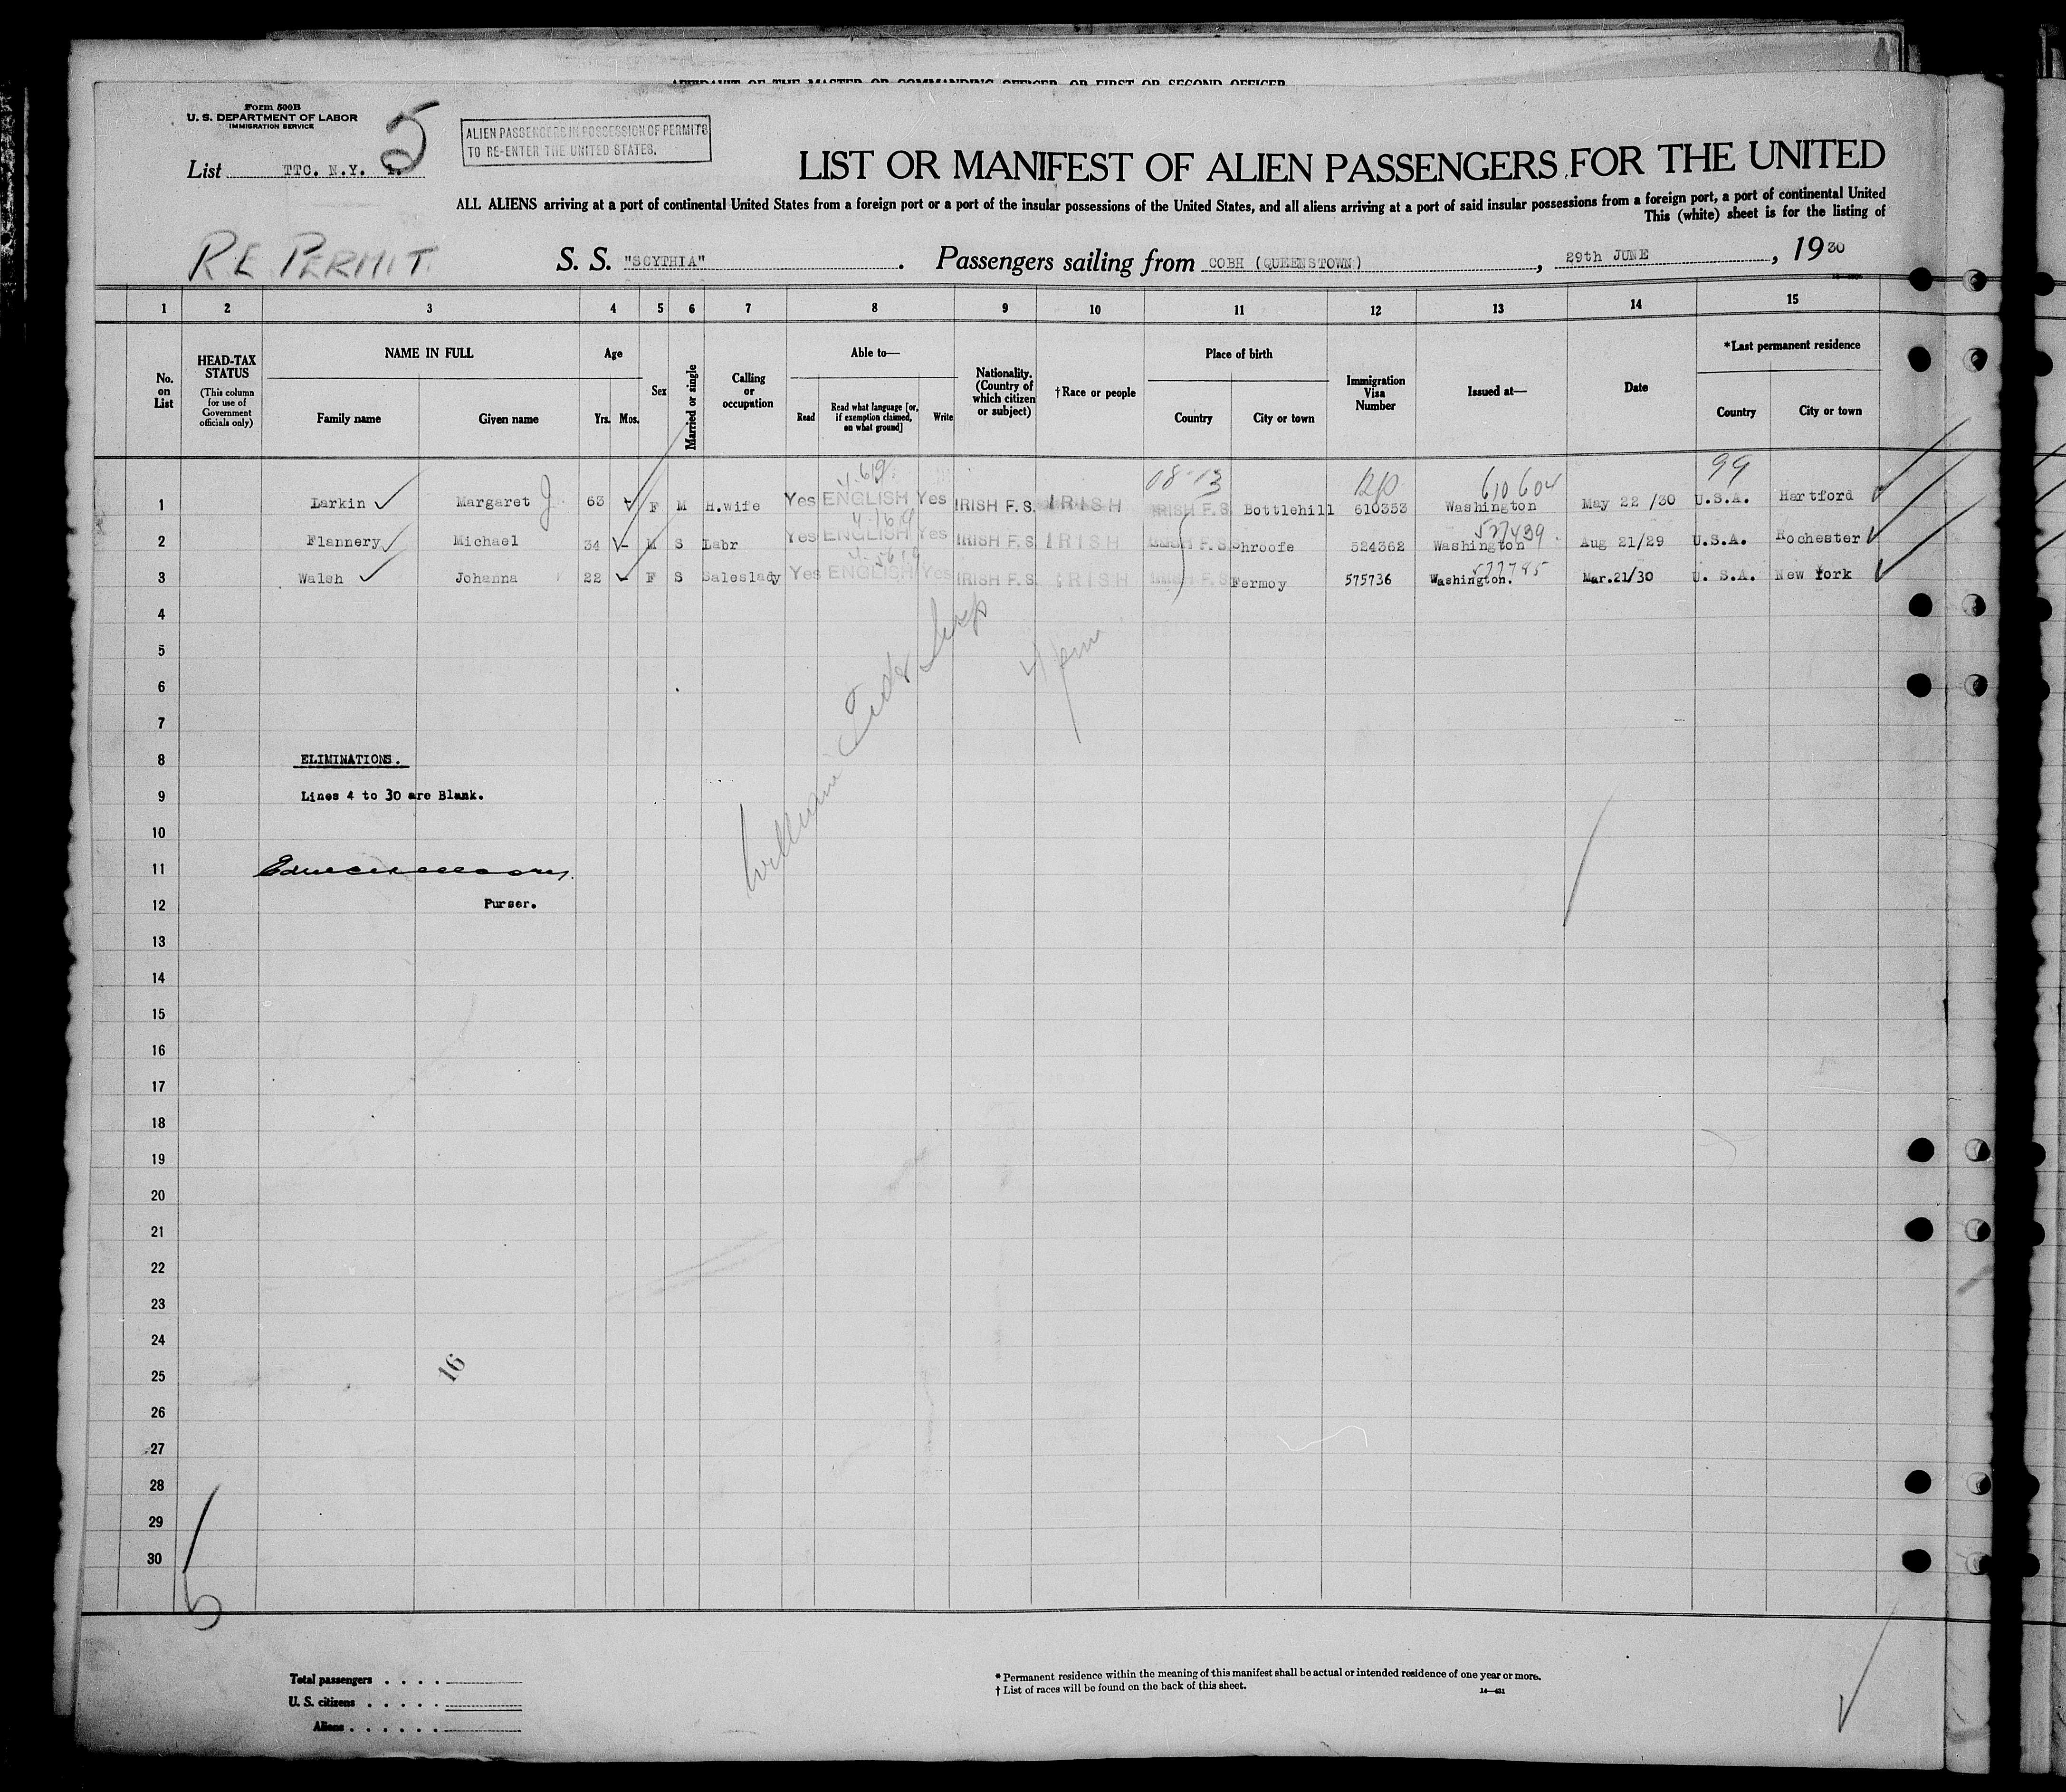 AFFIDAVIT OF THE MASTER OR COMMANDING OFFICER, OR FIRST OR SECOND OFFICER
Form 500B
U. S. DEPARTMENT OF LABOR
IMMIGRATION SERVICE
5
ALIEN PASSENGERS IN POSSESSION OF PERMITS
TO RE-ENTER THE UNITED STATES.
List TTC. N.Y.
LIST OR MANIFEST OF ALIEN PASSENGERS FOR THE UNITED
ALL ALIENS arriving at a port of continental United States from a foreign port or a port of the insular possessions of the United States, and all aliens arriving at a port of said insular possessions from a foreign port, a port of continental United
This (white) sheet is for the listing of
RE PERMIT.
S. S. "SCYTHIA". Passengers sailing from COBH (QUEENSTOWN), 29th JUNE, 1930
1 2 3 4 5 6 7 8 9 10 11 12 13 14 15
No. on List
HEAD-TAX STATUS
(This column for use of Government officials only)
NAME IN FULL
Family name Given name
Age
Yrs. Mos.
Sex
Married or single
Calling or occupation
Able to—
Read
Read what language [or, if exemption claimed, on what ground]
Write
Nationality. (Country of which citizen or subject)
†Race or people
Place of birth
Country City or town
Immigration Visa Number
Issued at—
Date
*Last permanent residence
Country City or town
08-13 610604 99
1 Larkin Margaret J 63 F M H.wife Yes ENGLISH Yes IRISH F.S. IRISH IRISH F.S. Bottlehill 610353 Washington May 22 /30 U.S.A. Hartford
527439
2 Flannery Michael 34 - M S Labr Yes ENGLISH Yes IRISH F.S. IRISH IRISH F.S. Shroofe 524362 Washington Aug 21/29 U.S.A. Rochester
577785
3 Walsh Johanna 22 - F S Saleslady Yes ENGLISH Yes IRISH F.S. IRISH IRISH F.S. Fermoy 575736 Washington. Mar.21/30 U. S.A. New York
4
5
6
7
8 ELIMINATIONS.
9 Lines 4 to 30 are Blank.
10
11
12 Purser.
13
14
15
16
17
18
19
20
21
22
23
24
25 16
26
27
28
29
30
Total passengers . . . .
U. S. citizens . . . . .
Aliens . . . . . .
* Permanent residence within the meaning of this manifest shall be actual or intended residence of one year or more.
† List of races will be found on the back of this sheet.
14—431